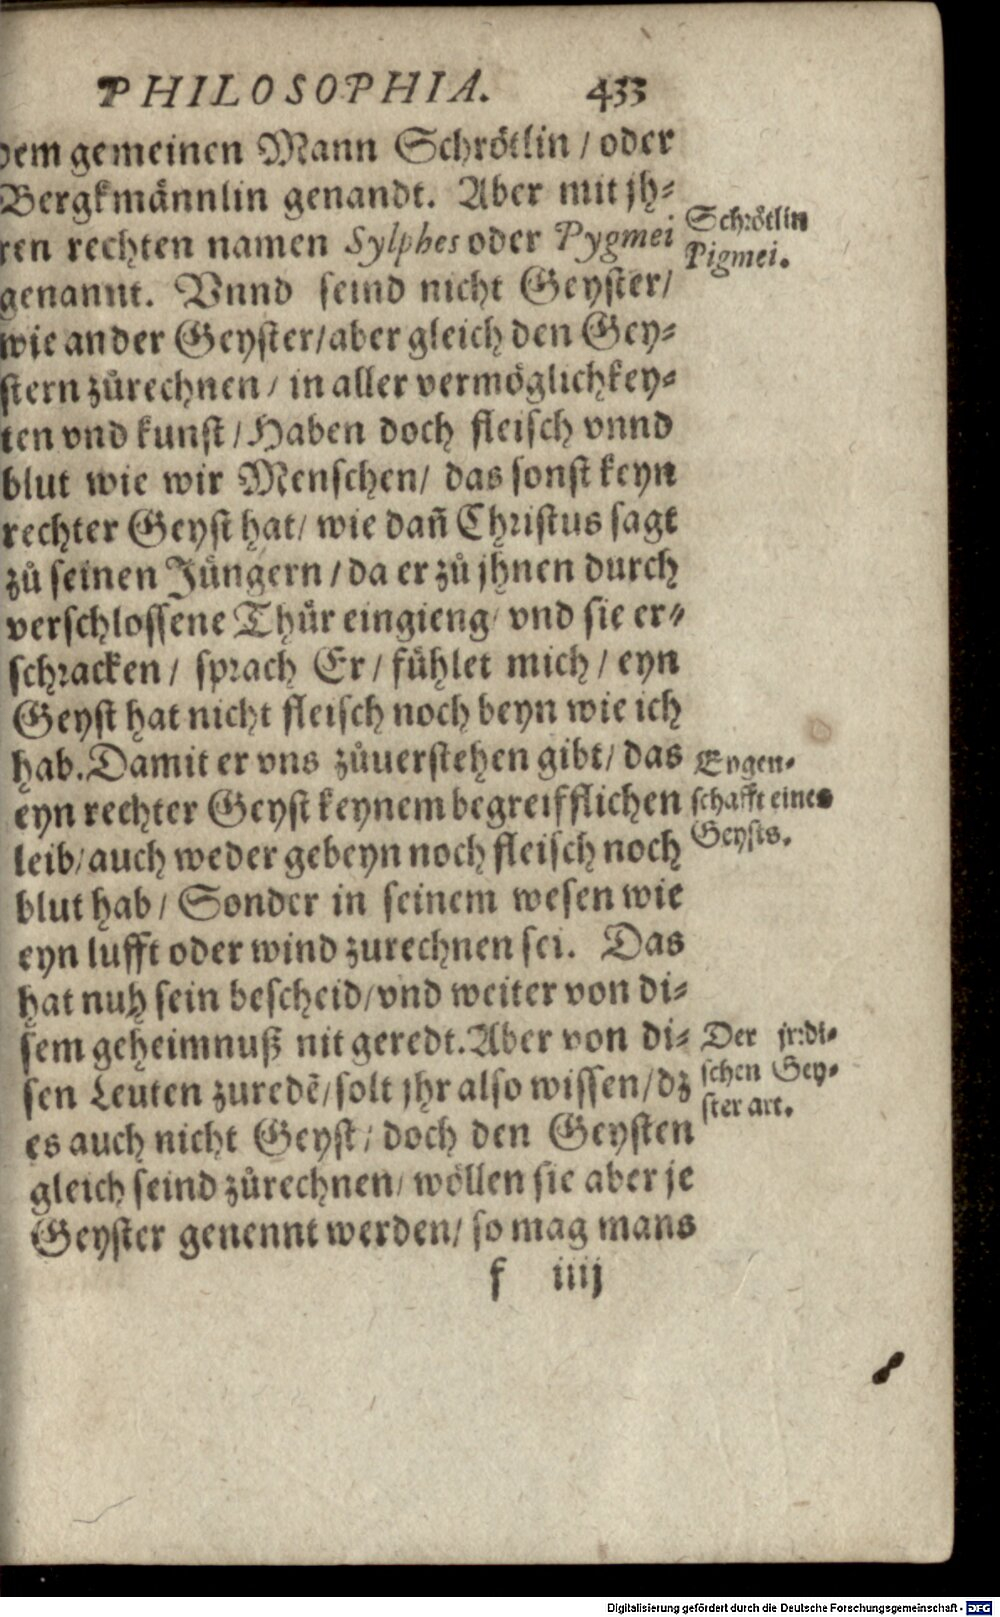 PHILOSOPHIA. 433
dem gemeinen Mann Schrötlin / oder
Bergkmännlin genandt. Aber mit jh⸗
ren rechten namen Sylphes oder Pygmei
genannt. Vnnd seind nicht Geyster /
wie ander Geyster / aber gleich den Gey⸗
stern zůrechnen / in aller vermöglichkey⸗
ten vnd kunst / Haben doch fleisch vnnd
blut wie wir Menschen / das sonst keyn
rechter Geyst hat / wie dañ Christus sagt
zů seinen Jüngern / da er zů jhnen durch
verschlossene Thür eingieng / vnd sie er⸗
schracken / sprach Er / fühlet mich / eyn
Geyst hat nicht fleisch noch beyn wie ich
hab. Damit er vns zůuerstehen gibt / das
eyn rechter Geyst keynem begreifflichen
leib / auch weder gebeyn noch fleisch noch
blut hab / Sonder in seinem wesen wie
eyn lufft oder wind zurechnen sei. Das
hat nuh sein bescheid / vnd weiter von di⸗
sem geheimnuß nit geredt. Aber von di⸗
sen Leuten zuredẽ / solt jhr also wissen / dz
es auch nicht Geyst / doch den Geysten
gleich seind zůrechnen / wöllen sie aber je
Geyster genennt werden / so mag mans
f iiij
Schrötlin
Pigmei.
Eygen⸗
schafft eines
Geysts.
Der jrrdi⸗
schen Gey⸗
ster art.
Digitalisierung gefördert durch die Deutsche Forschungsgemeinschaft - DFG